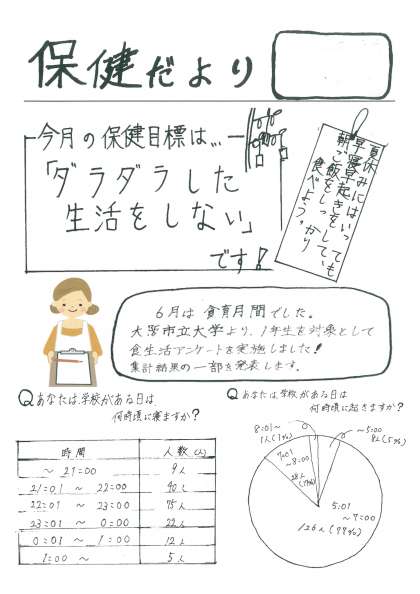 保健だより
今月の保健目標は...
「ダラダラした
生活をしない」
です!
夏休みにはいっても
早寝早起きをして、
朝ご飯をしっかり
食べよう。
6月は食育月間でした。
大阪市立大学より、1年生を対象として
食生活アンケートを実施しました!
集計結果の一部を発表します。
Qあなたは、学校がある日は
何時頃に寝ますか?
時間 人数(人)
~ 21:00 9人
21:01 ~ 22:00 40人
22:01 ~ 23:00 75人
23:01 ~ 0:00 22人
0:01 ~ 1:00 12人
1:00 ~ 5人
Qあなたは、学校がある日は
何時頃に起きますか?
8:01~
1人(1%)
~5:00
8人(5%)
7:01
~8:00
28人
(17%)
5:01
~7:00
126人(77%)